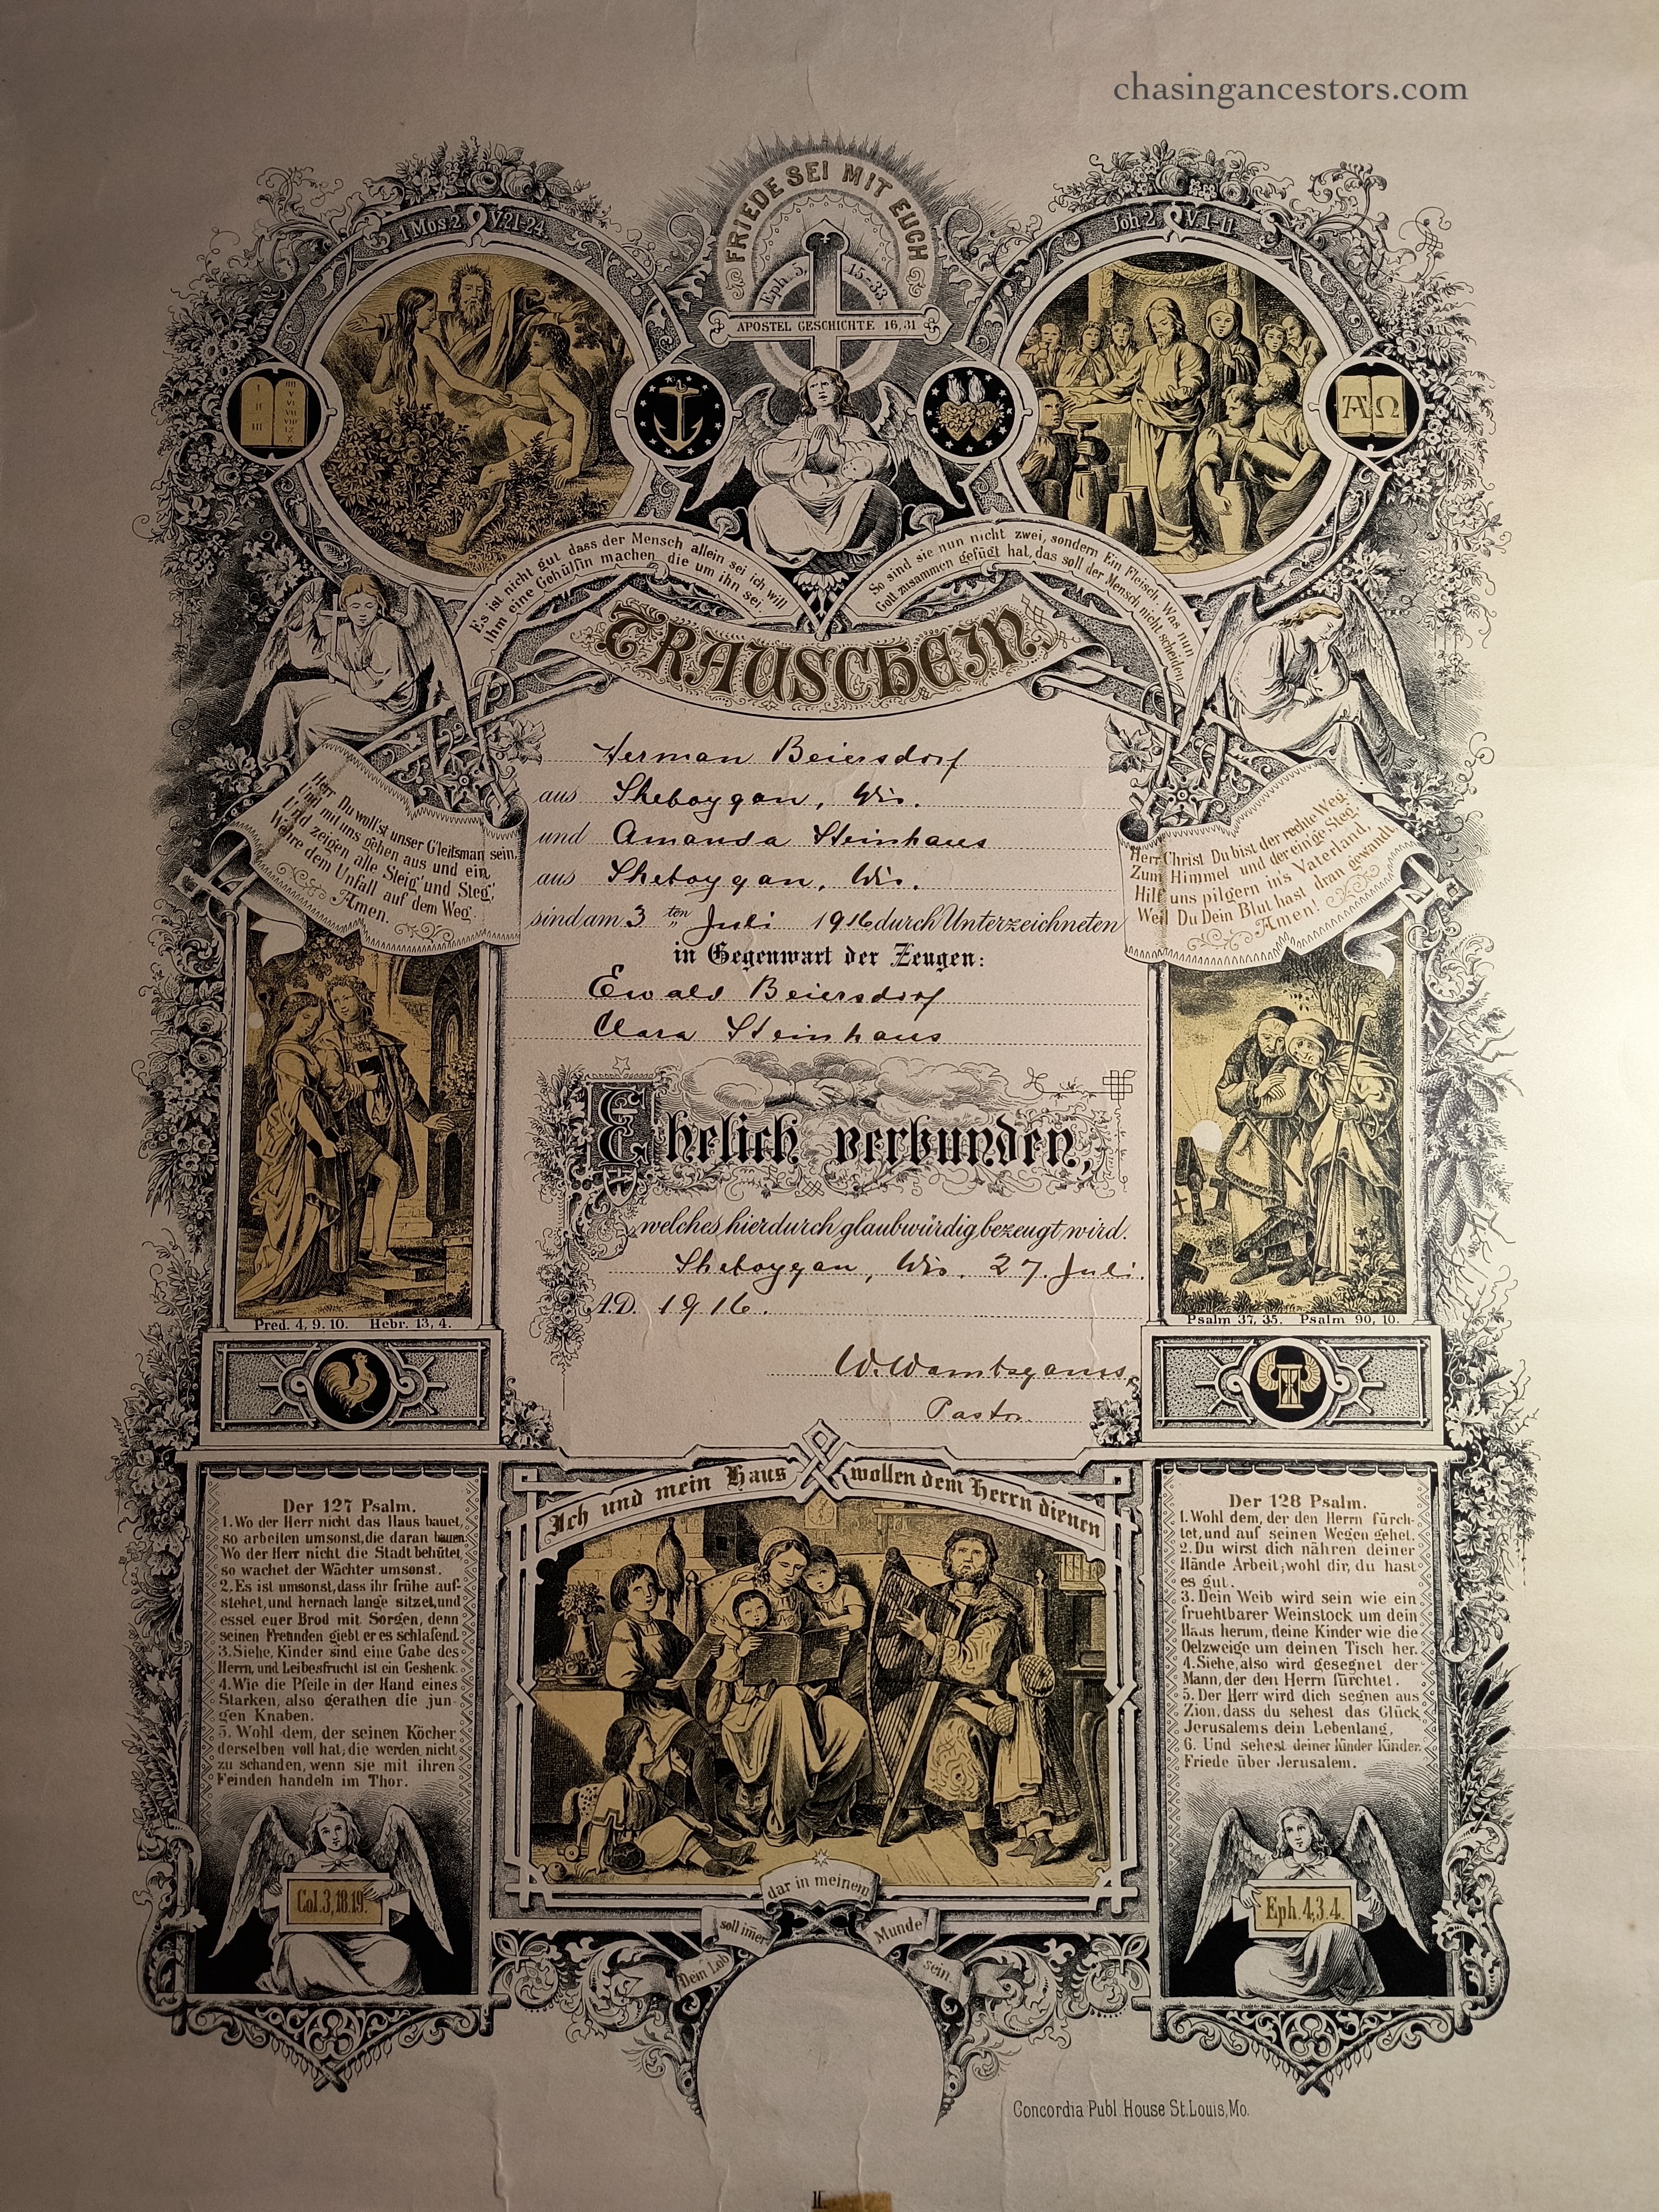 chasingancestors.com
FRIEDE SEI MIT EUCH
1 Mos. 2. V. 21-24.
Eph. 5, 15-33.
Joh. 2. V. 1-11.
APOSTEL GESCHICHTE 16, 31
I II III IIII V VI VII VIII IX X
A Ω
Es ist nicht gut, dass der Mensch allein sei ich will
ihm eine Gehülfin machen, die um ihn sei.
So sind sie nun nicht zwei, sondern Ein Fleisch. Was nun
Gott zusammen gefügt hat, das soll der Mensch nicht scheiden
TRAUSCHEIN
Herman Beiersdorf
aus Sheboygan, Wis.
und Amanda Steinhaus
aus Sheboygan, Wis.
sind am 3 ten Juli 1916 durch Unterzeichneten
in Gegenwart der Zeugen:
Ewald Beiersdorf
Clara Steinhaus
Ehelich verbunden,
welches hierdurch glaubwürdig bezeugt wird.
Sheboygan, Wis. 27. Juli.
A.D. 1916.
W. Wambsganss,
Pastor.
Herr Du woll'st unser G'leitsman sein,
Und mit uns gehen aus und ein,
Und zeigen alle Steig' und Steg',
Wehre dem Unfall auf dem Weg.
Amen.
Herr Christ Du bist der rechte Weg,
Zum Himmel und der ein'ge Steg.
Hilf uns pilgern in's Vaterland,
Weil Du Dein Blut hast dran gewandt.
Amen!
Pred. 4, 9. 10. Hebr. 13, 4.
Psalm 37, 35. Psalm 90, 10.
Ich und mein Haus wollen dem Herrn dienen
Der 127 Psalm.
1. Wo der Herr nicht das Haus bauet,
so arbeiten umsonst, die daran bauen.
Wo der Herr nicht die Stadt behütet,
so wachet der Wächter umsonst.
2. Es ist umsonst, dass ihr frühe auf-
stehet, und hernach lange sitzet, und
esset euer Brod mit Sorgen, denn
seinen Freunden giebt er es schlafend.
3. Siehe, Kinder sind eine Gabe des
Herrn, und Leibesfrucht ist ein Geshenk.
4. Wie die Pfeile in der Hand eines
Starken, also gerathen die jun-
gen Knaben.
5. Wohl dem, der seinen Köcher
derselben voll hat, die werden nicht
zu schanden, wenn sie mit ihren
Feinden handeln im Thor.
Col. 3, 18. 19.
Der 128 Psalm.
1. Wohl dem, der den Herrn fürch-
tet, und auf seinen Wegen gehet.
2. Du wirst dich nähren deiner
Hände Arbeit; wohl dir, du hast
es gut.
3. Dein Weib wird sein wie ein
fruehtbarer Weinstock um dein
Haus herum, deine Kinder wie die
Oelzweige um deinen Tisch her.
4. Siehe, also wird gesegnet der
Mann, der den Herrn fürchtet.
5. Der Herr wird dich segnen aus
Zion, dass du sehest das Glück
Jerusalems dein Lebenlang,
6. Und sehest deiner Kinder Kinder.
Friede über Jerusalem.
Eph. 4, 3. 4.
Dein Lob soll im̄er dar in meinem Munde sein.
Concordia Publ. House St. Louis, Mo.